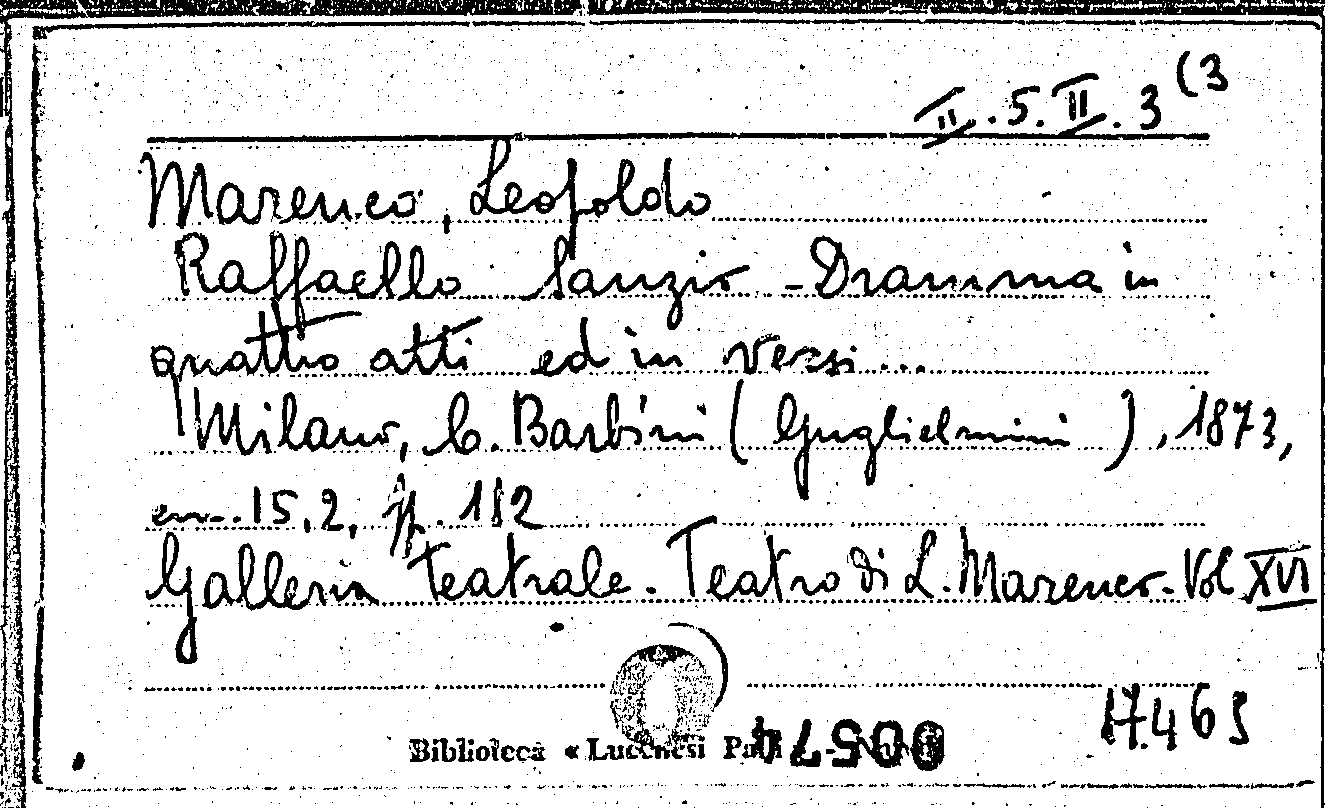 II.5.II.3(3
Marenco, Leopoldo
Raffaello Sanzio - Dramma in
quattro atti ed in versi...
Milano, C. Barbini (Guglielmini), 1873,
cm. 15,2, pp. 112
Galleria teatrale. Teatro di L. Marenco. Vol XVI
17.465
Biblioteca « Lucchesi Palli